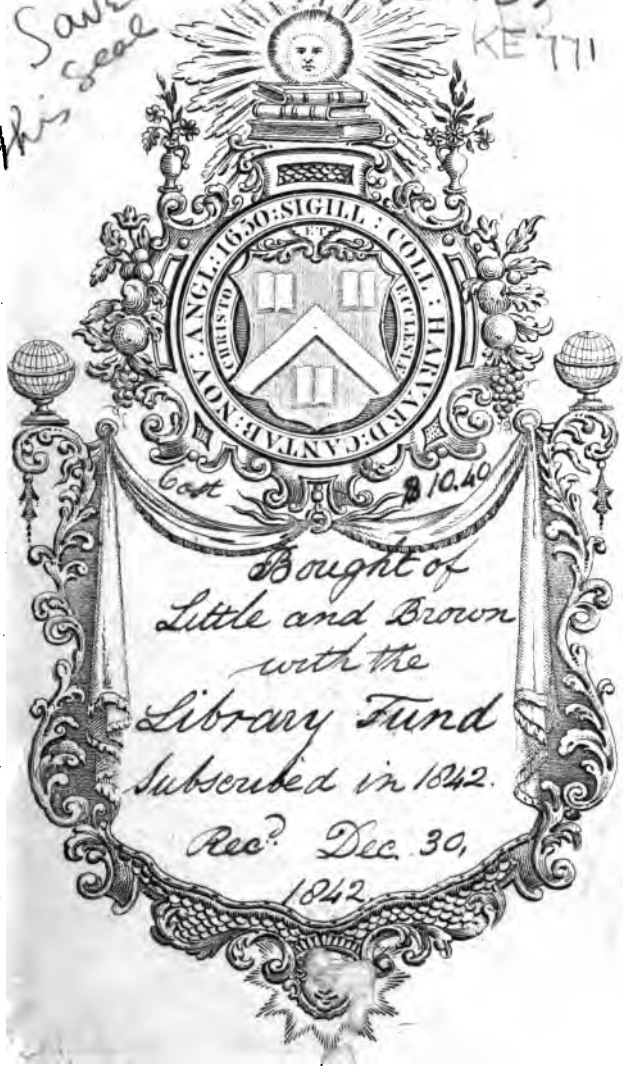 Save
this
seal
KE 771
SIGILL : COLL : HARVARD: CANTAB: NOV: ANGL: 1650:
ET
CHRISTO
ECCLESIÆ
Cost $10.40
Bought of
Little and Brown
with the
Library Fund
Subscribed in 1842.
Recd. Dec. 30,
1842